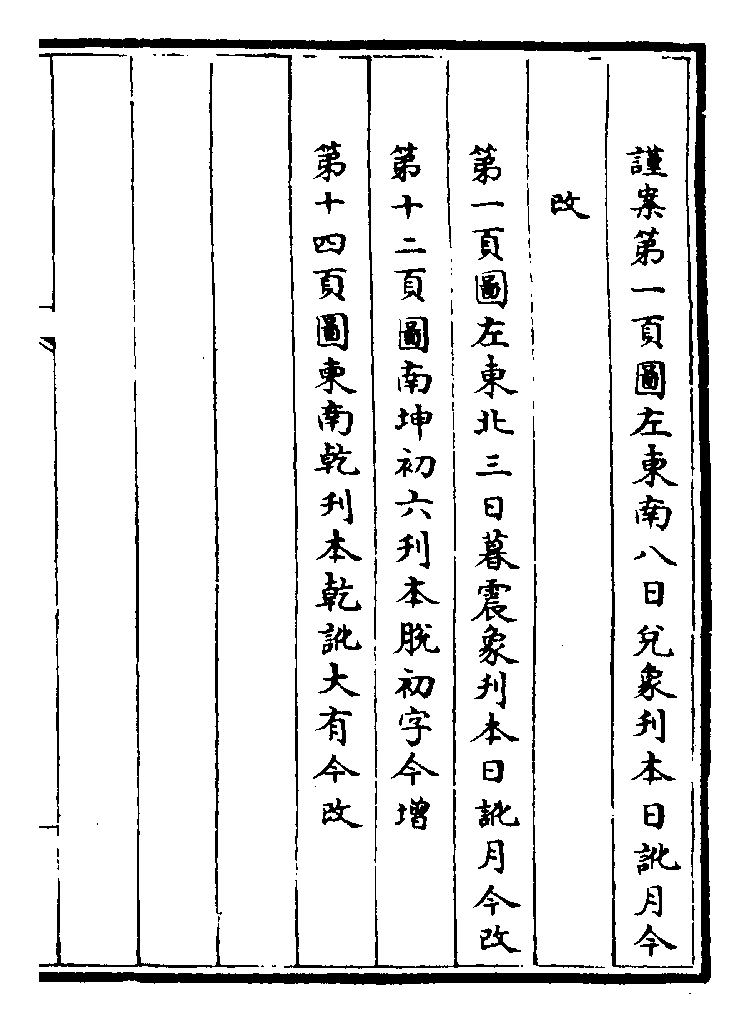 謹案第一頁圖左東南八日兌象刋本日訛月今
改
第一頁圖左東北三日暮震象刋本日訛月今改
第十二頁圖南坤初六刋本脫初字今增
第十四頁圖東南乾刋本乾訛大有今改